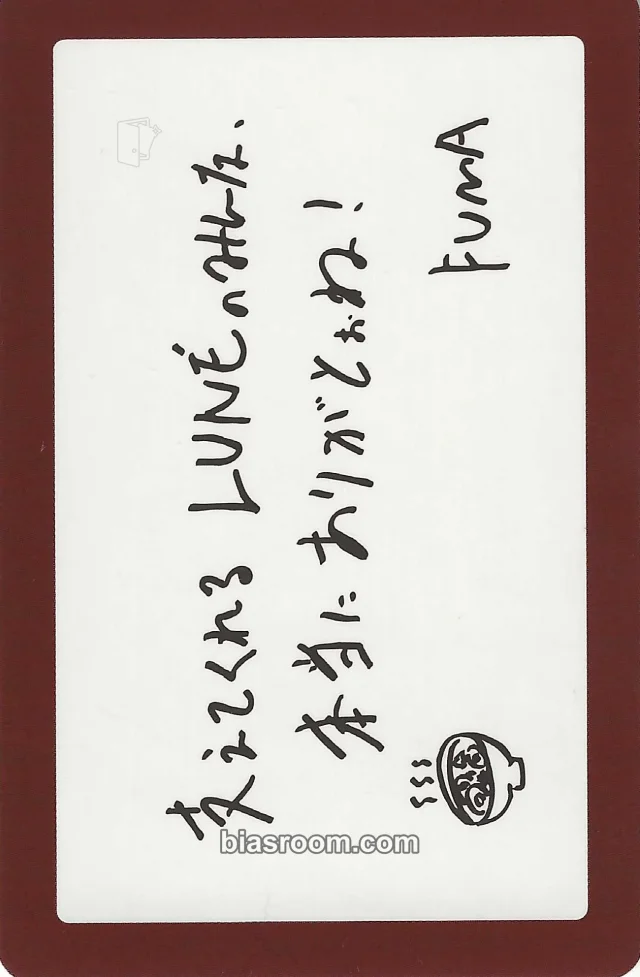 支えてくれる LUNÉのみんな、
本当にありがとぉね!
FUMA
biasroom.com